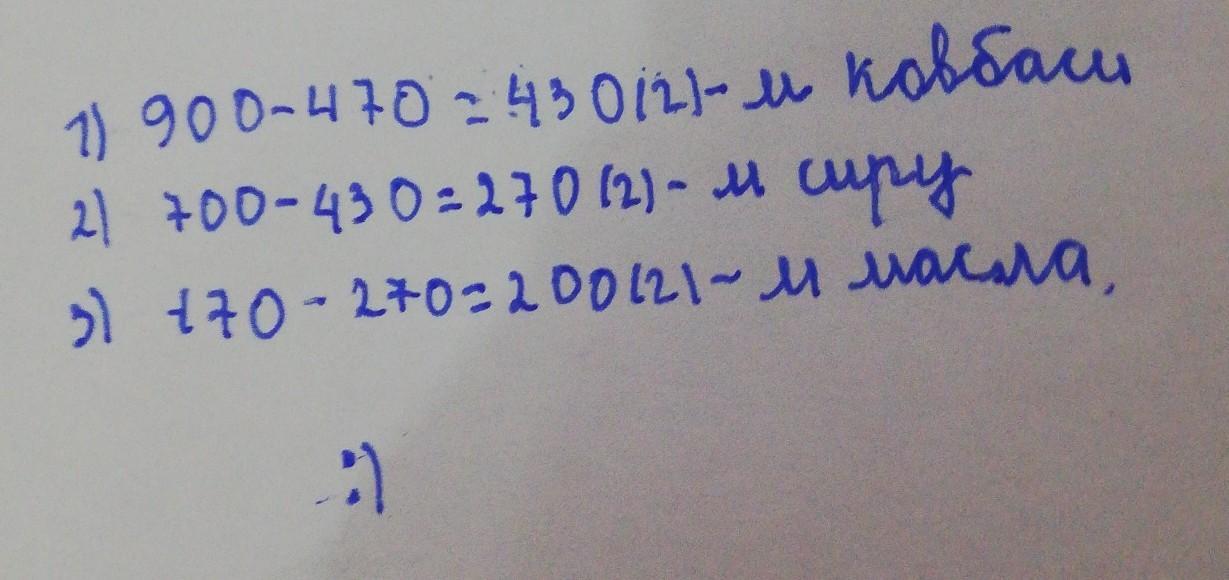 1) 900-470=430(г)-м ковбаси
2) 700-430=270(г)-м сиру
3) 470-270=200(г)-м масла.
:)